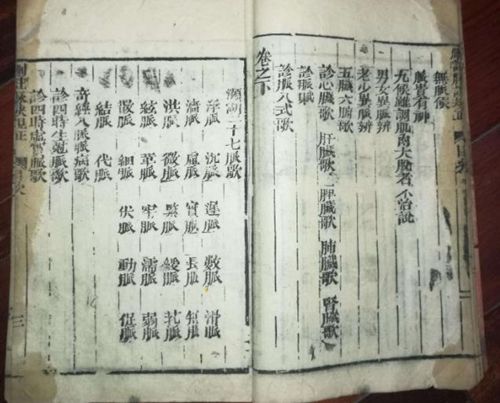 無脈候
脈貴有神
九候雖調肌肉大脫者不治說
男女異脈辨
老少異脈辨
五臟六腑歌
診心臟歌 肝臟歌 脾臟歌 肺臟歌 腎臟歌
診脈賦
診脈入式歌
卷之下
瀕湖二十七脈歌
浮脈 沉脈 遲脈 數脈 滑脈
濇脈 虛脈 實脈 長脈 短脈
洪脈 微脈 緊脈 緩脈 芤脈
弦脈 革脈 牢脈 濡脈 弱脈
散脈 細脈 伏脈 動脈 促脈
結脈 代脈
奇經八脈脈病歌
診四時生尅脈歌
診四時虛實脈歌
三